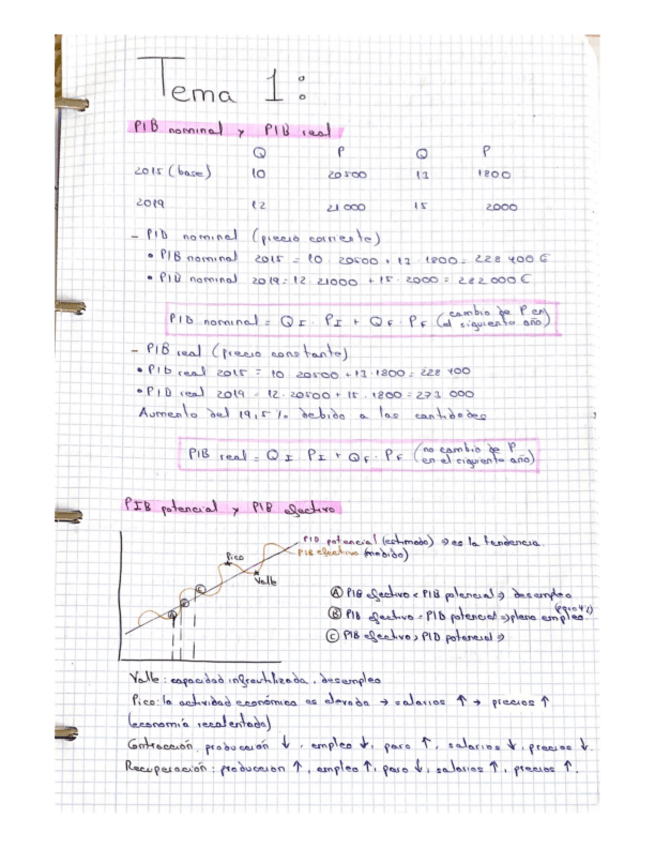 Tema 1:
PIB nominal y PIB real
Q P Q P
2015 (base) 10 20500 13 1800
2019 12 21000 15 2000
- PIB nominal (precio corriente)
• PIB nominal 2015 = 10 · 20500 + 13 · 1800 = 228 400 €
• PIB nominal 2019 = 12 · 21000 + 15 · 2000 = 282 000 €
PIB nominal = Q I · P I + Q F · P F (cambio de P en el siguiente año)
- PIB real (precio constante)
• PIB real 2015 = 10 · 20500 + 13 · 1800 = 228 400
• PIB real 2019 = 12 · 20500 + 15 · 1800 = 273 000
Aumento del 19,5% debido a las cantidades
PIB real = Q I · P I + Q F · P F (no cambio de P en el siguiente año)
PIB potencial y PIB efectivo
PIB potencial (estimado) → es la tendencia.
PIB efectivo (medido)
Pico
Valle
A
B
C
Ⓐ PIB efectivo < PIB potencial → desempleo
Ⓑ PIB efectivo = PIB potencial → pleno empleo
Ⓒ PIB efectivo > PIB potencial →
Valle: capacidad infrautilizada, desempleo
Pico: la actividad económica es elevada → salarios ↑ → precios ↑
(economía recalentada)
Contracción: producción ↓, empleo ↓, paro ↑, salarios ↓, precios ↓.
Recuperación: producción ↑, empleo ↑, paro ↓, salarios ↑, precios ↑.